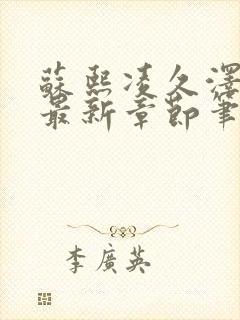 蘇熙凌久澤
最新章節筆
李廣英